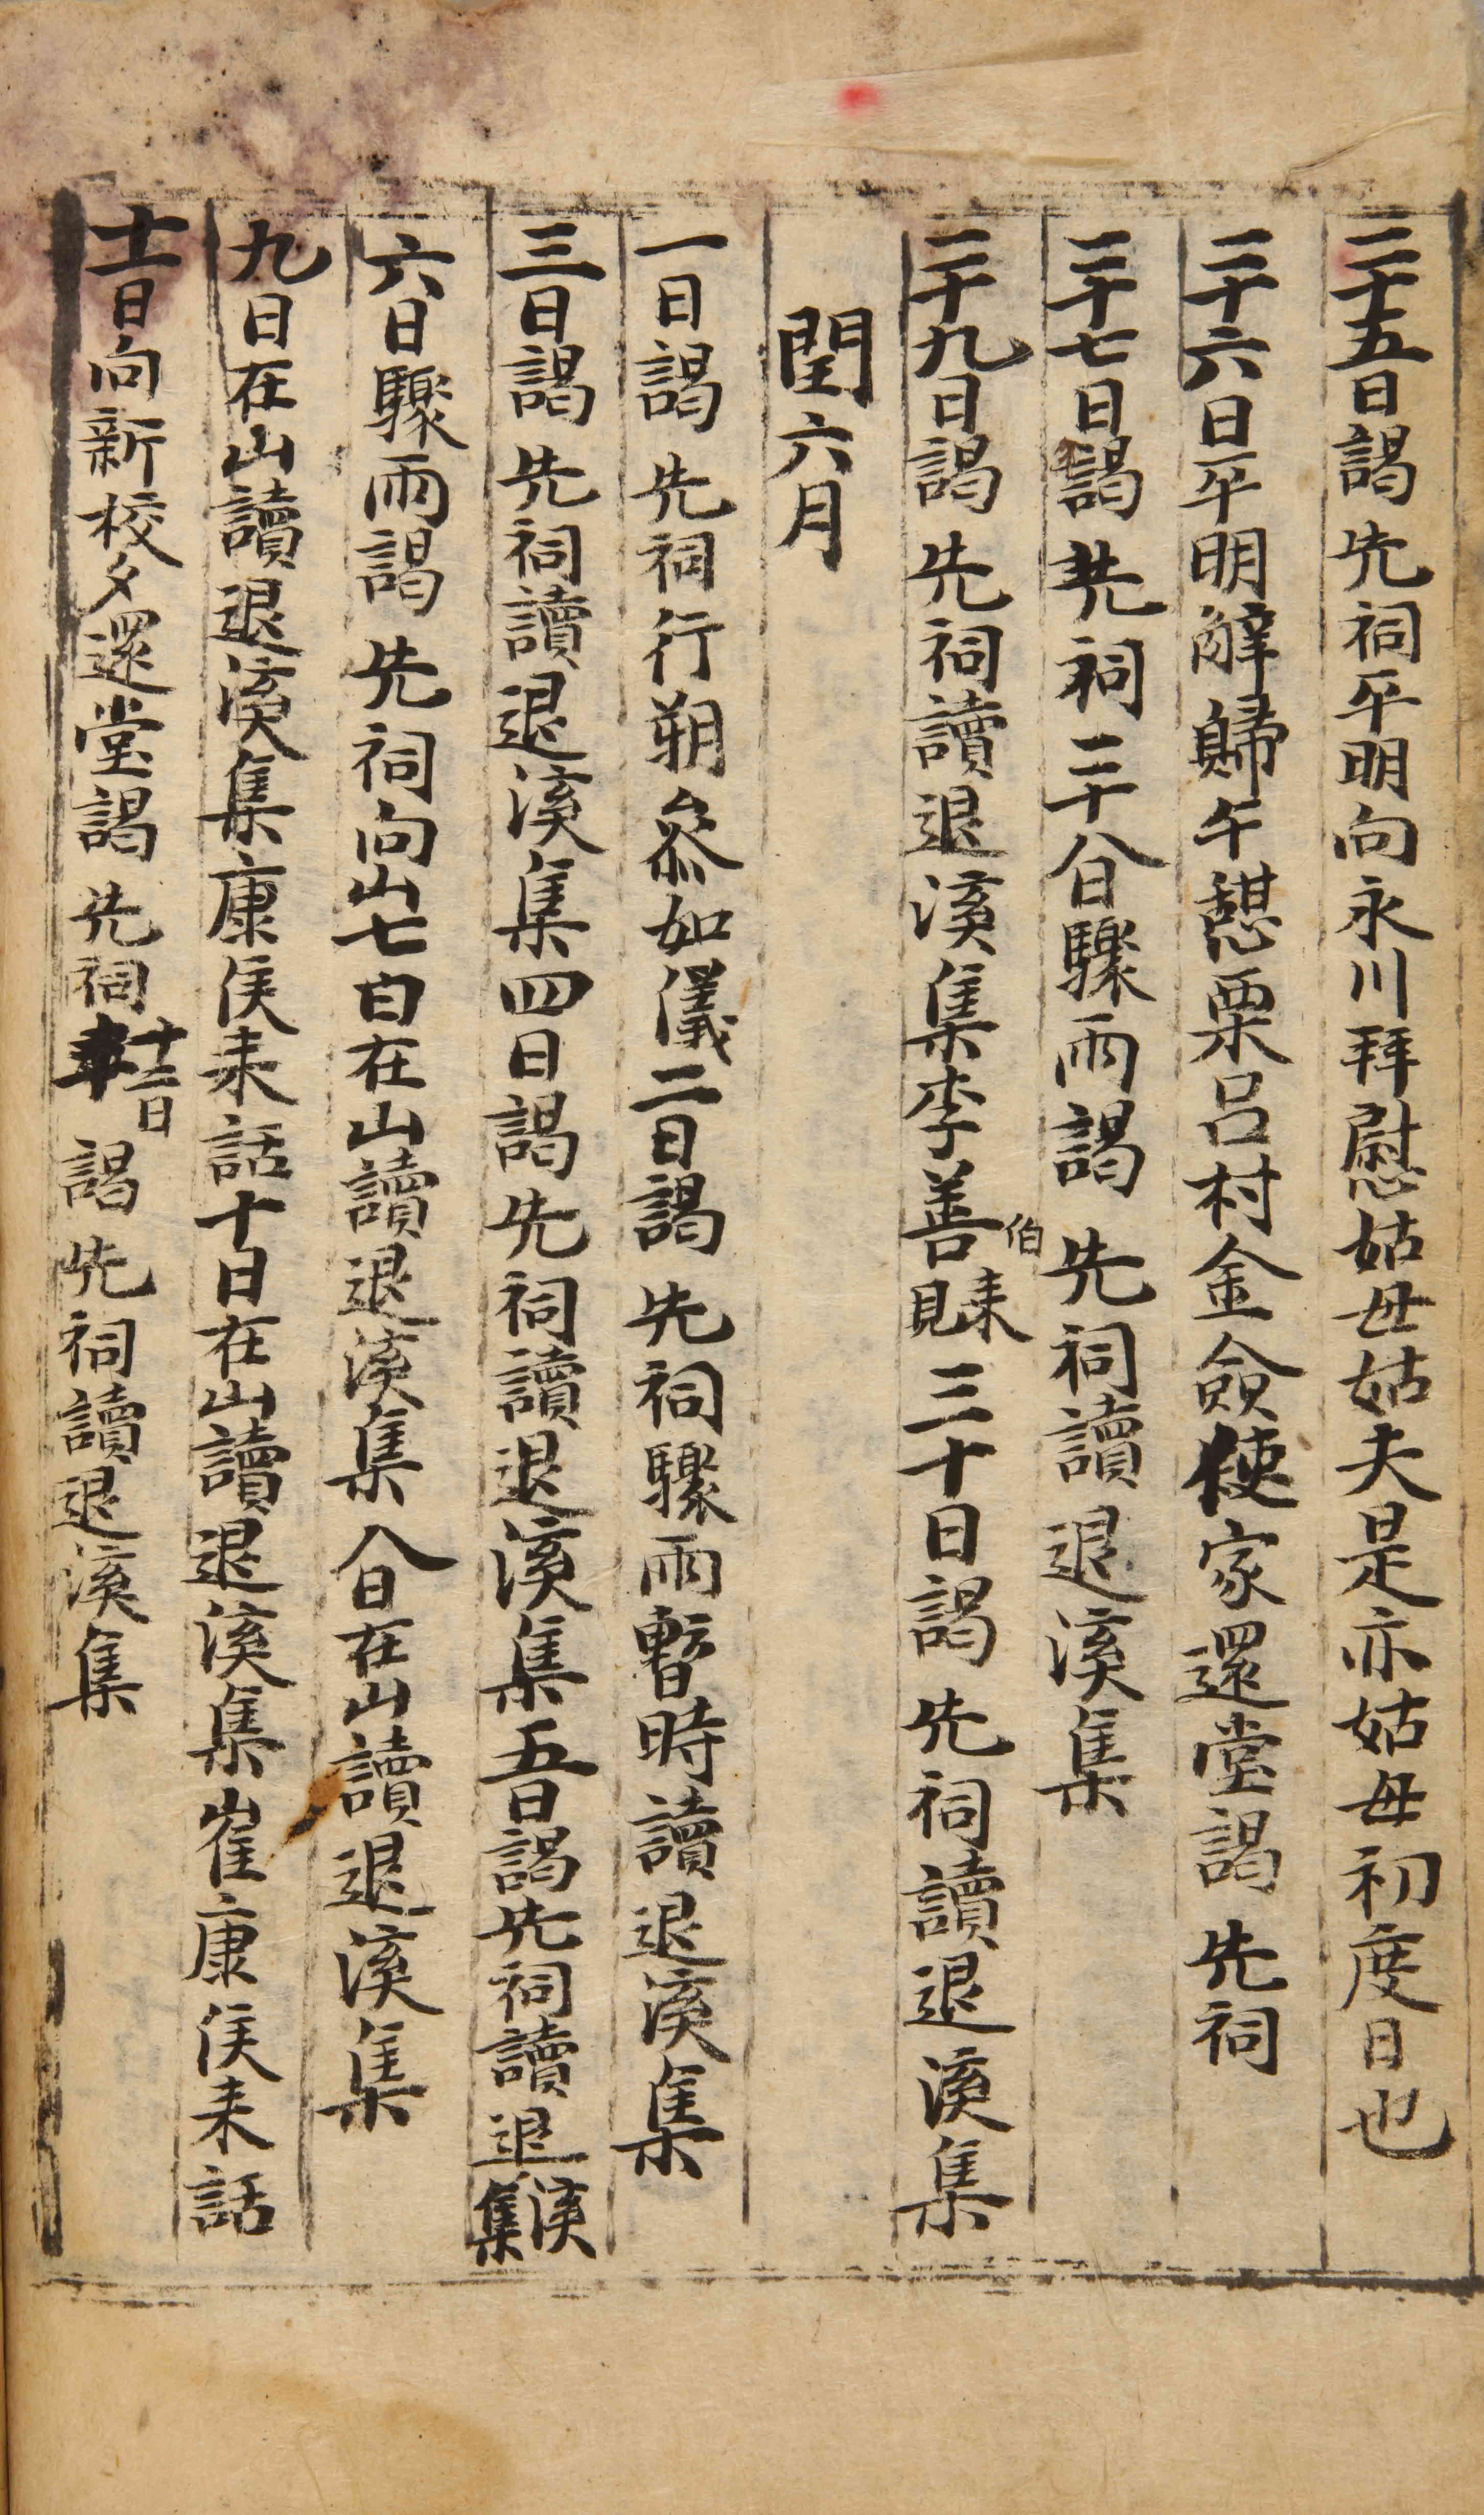 二十五日謁先祠平明向永川拜慰姑母姑夫是亦姑母初度日也
二十六日平明辭歸午憩栗呂村金僉使家還堂謁先祠
二十七日謁先祠二十八日驟雨謁先祠讀退溪集
二十九日謁先祠讀退溪集李善伯來見三十日謁先祠讀退溪集
閏六月
一日謁先祠行朔參如儀二日謁先祠驟雨暫時讀退溪集
三日謁先祠讀退溪集四日謁先祠讀退溪集五日謁先祠讀退溪集
六日驟雨謁先祠向山七日在山讀退溪集八日在山讀退溪集
九日在山讀退溪集康侯来話十日在山讀退溪集崔康侯来話
十一日向新校夕還堂謁先祠十二日謁先祠讀退溪集